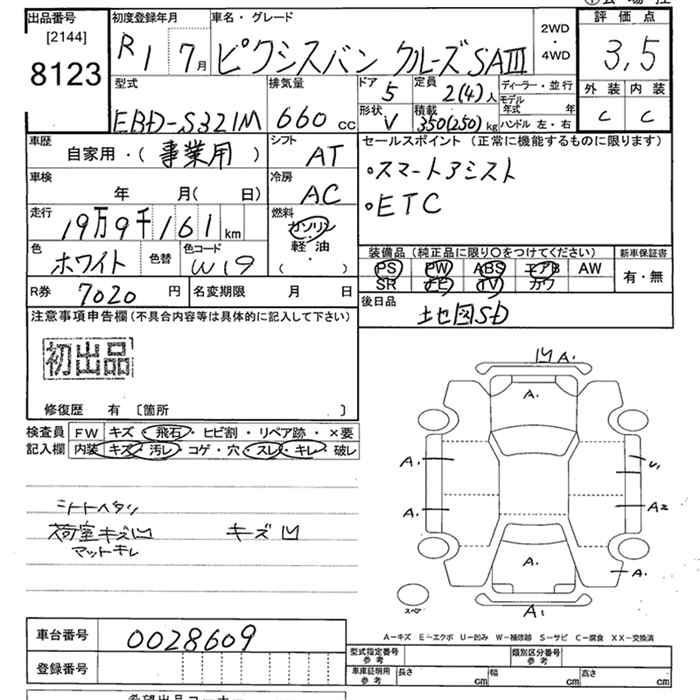 出品番号
[2144]
8123
初度登録年月
R1 7月
車名・グレード
ピクシスバン クルーズSAⅢ
2WD
・
4WD
評価点
3,5
外装 内装
C C
型式
EBD-S321M
排気量
660 cc
ドア
5
定員
2(4)人
形状
V
積載
350(250)kg
ディーラー・並行
モデル年式 年
ハンドル 左・右
車歴
自家用・(事業用)
シフト
AT
セールスポイント(正常に機能するものに限ります)
・スマートアシスト
・ETC
車検
年 月( 日)
冷房
AC
走行
19万9千161km
燃料
ガソリン
軽油
( ・ )
色
ホワイト
色替
色コード
W19
装備品(純正品に限り○をつけてください)
新車保証書
PS PW ABS エアB AW
SR ナビ TV カワ
有・無
R券
7020円
名変期限 月 日
後日品
地図SD
注意事項申告欄(不具合内容等は具体的に記入して下さい)
初出品
修復歴 有 〔箇所 〕
検査員記入欄
FW キズ・飛石・ヒビ割・リペア跡・×要
内装 キズ・汚レ・コゲ・穴・スレ・キレ・破レ
シートヘタリ
荷室キズ凹 キズ凹
マットキレ
凹A.
A.
A. U1
A. A2
A. A.
スペア
A1
A-キズ E-エクボ U-凹み W-補修跡 S-サビ C-腐食 XX-交換済
車台番号
0028609
登録番号
型式指定番号 参考
類別区分番号 参考
車庫証明用 参考
長さ cm 幅 cm 高さ cm
希望出品コーナー